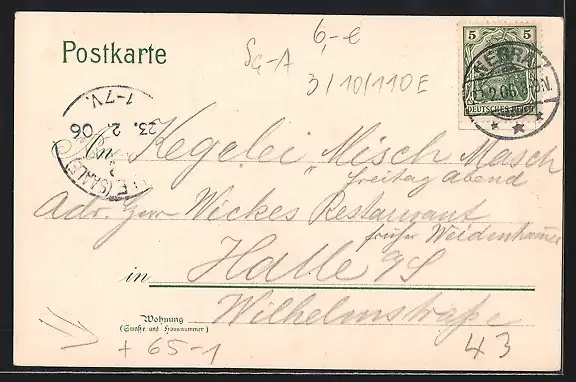 Postkarte
6,-e
Sa-A
3/10/110E
5
DEUTSCHES REICH
NEBRA
2.06
V.
1-7V.
23. 2. 06
(SAALE)
An Kegelei Misch Masch
" Freitag abend
Adr. Herr Wickes Restaurant
früher Weidenhammer
in Halle a/S
Wohnung
(Straße und Hausnummer)
Wilhelmstraße
43
+ 65-1